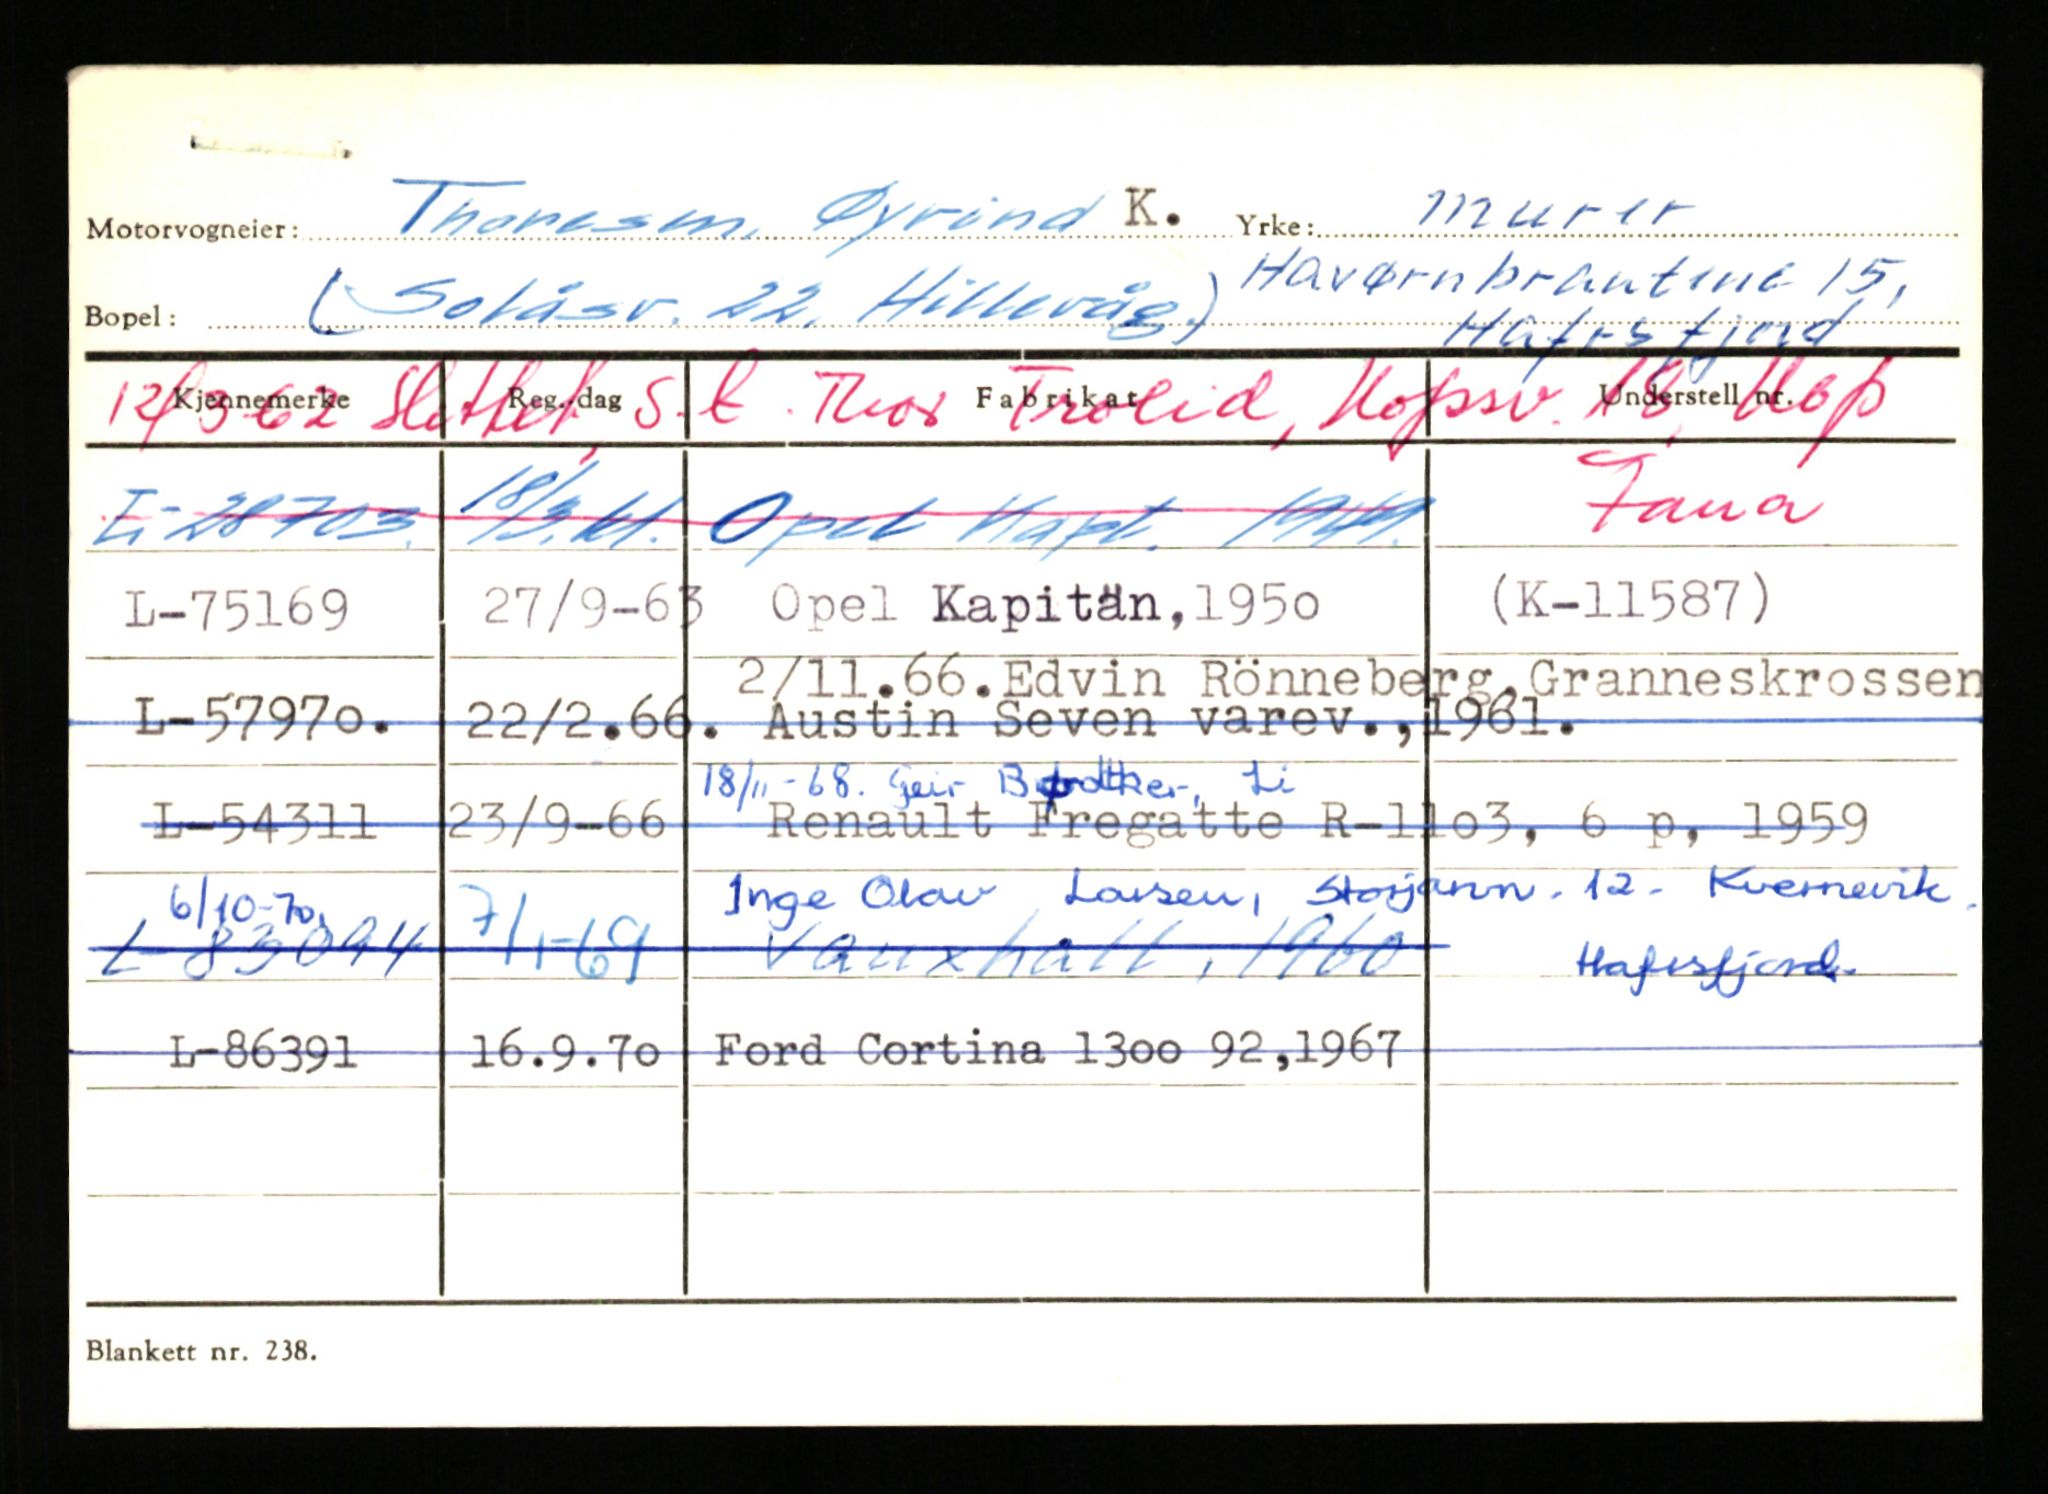 Motorvogneier: Thoresen, Øyvind K. Yrke: Murer
Bopel: (Solåsv. 22, Hillevåg.) Havørnbrautene 15,
Hafrsfjord
Kjennemerke Reg. dag Fabrikat Understell nr.
12/3-62 Slettet, S. t. Thor Trolid, Hopsv. 18, Hop
Fana
L-28703. 18/3.61. Opel Kapt. 1949.
L-75169 27/9-63 Opel Kapitän,195o (K-11587)
2/11.66.Edvin Rönneberg,Granneskrossen
L-5797o. 22/2.66. Austin Seven varev.,1961.
18/11-68. Geir Li
L-54311 23/9-66 Renault Fregatte R-11o3, 6 p, 1959
6/10-70, Inge Olav Larsen, Storjann. 12 - Kvernevik.
L-83094 7/1-69 Vauxhall, 1960 Hafrsfjord.
L-86391 16.9.7o Ford Cortina 13oo 92,1967
Blankett nr. 238.